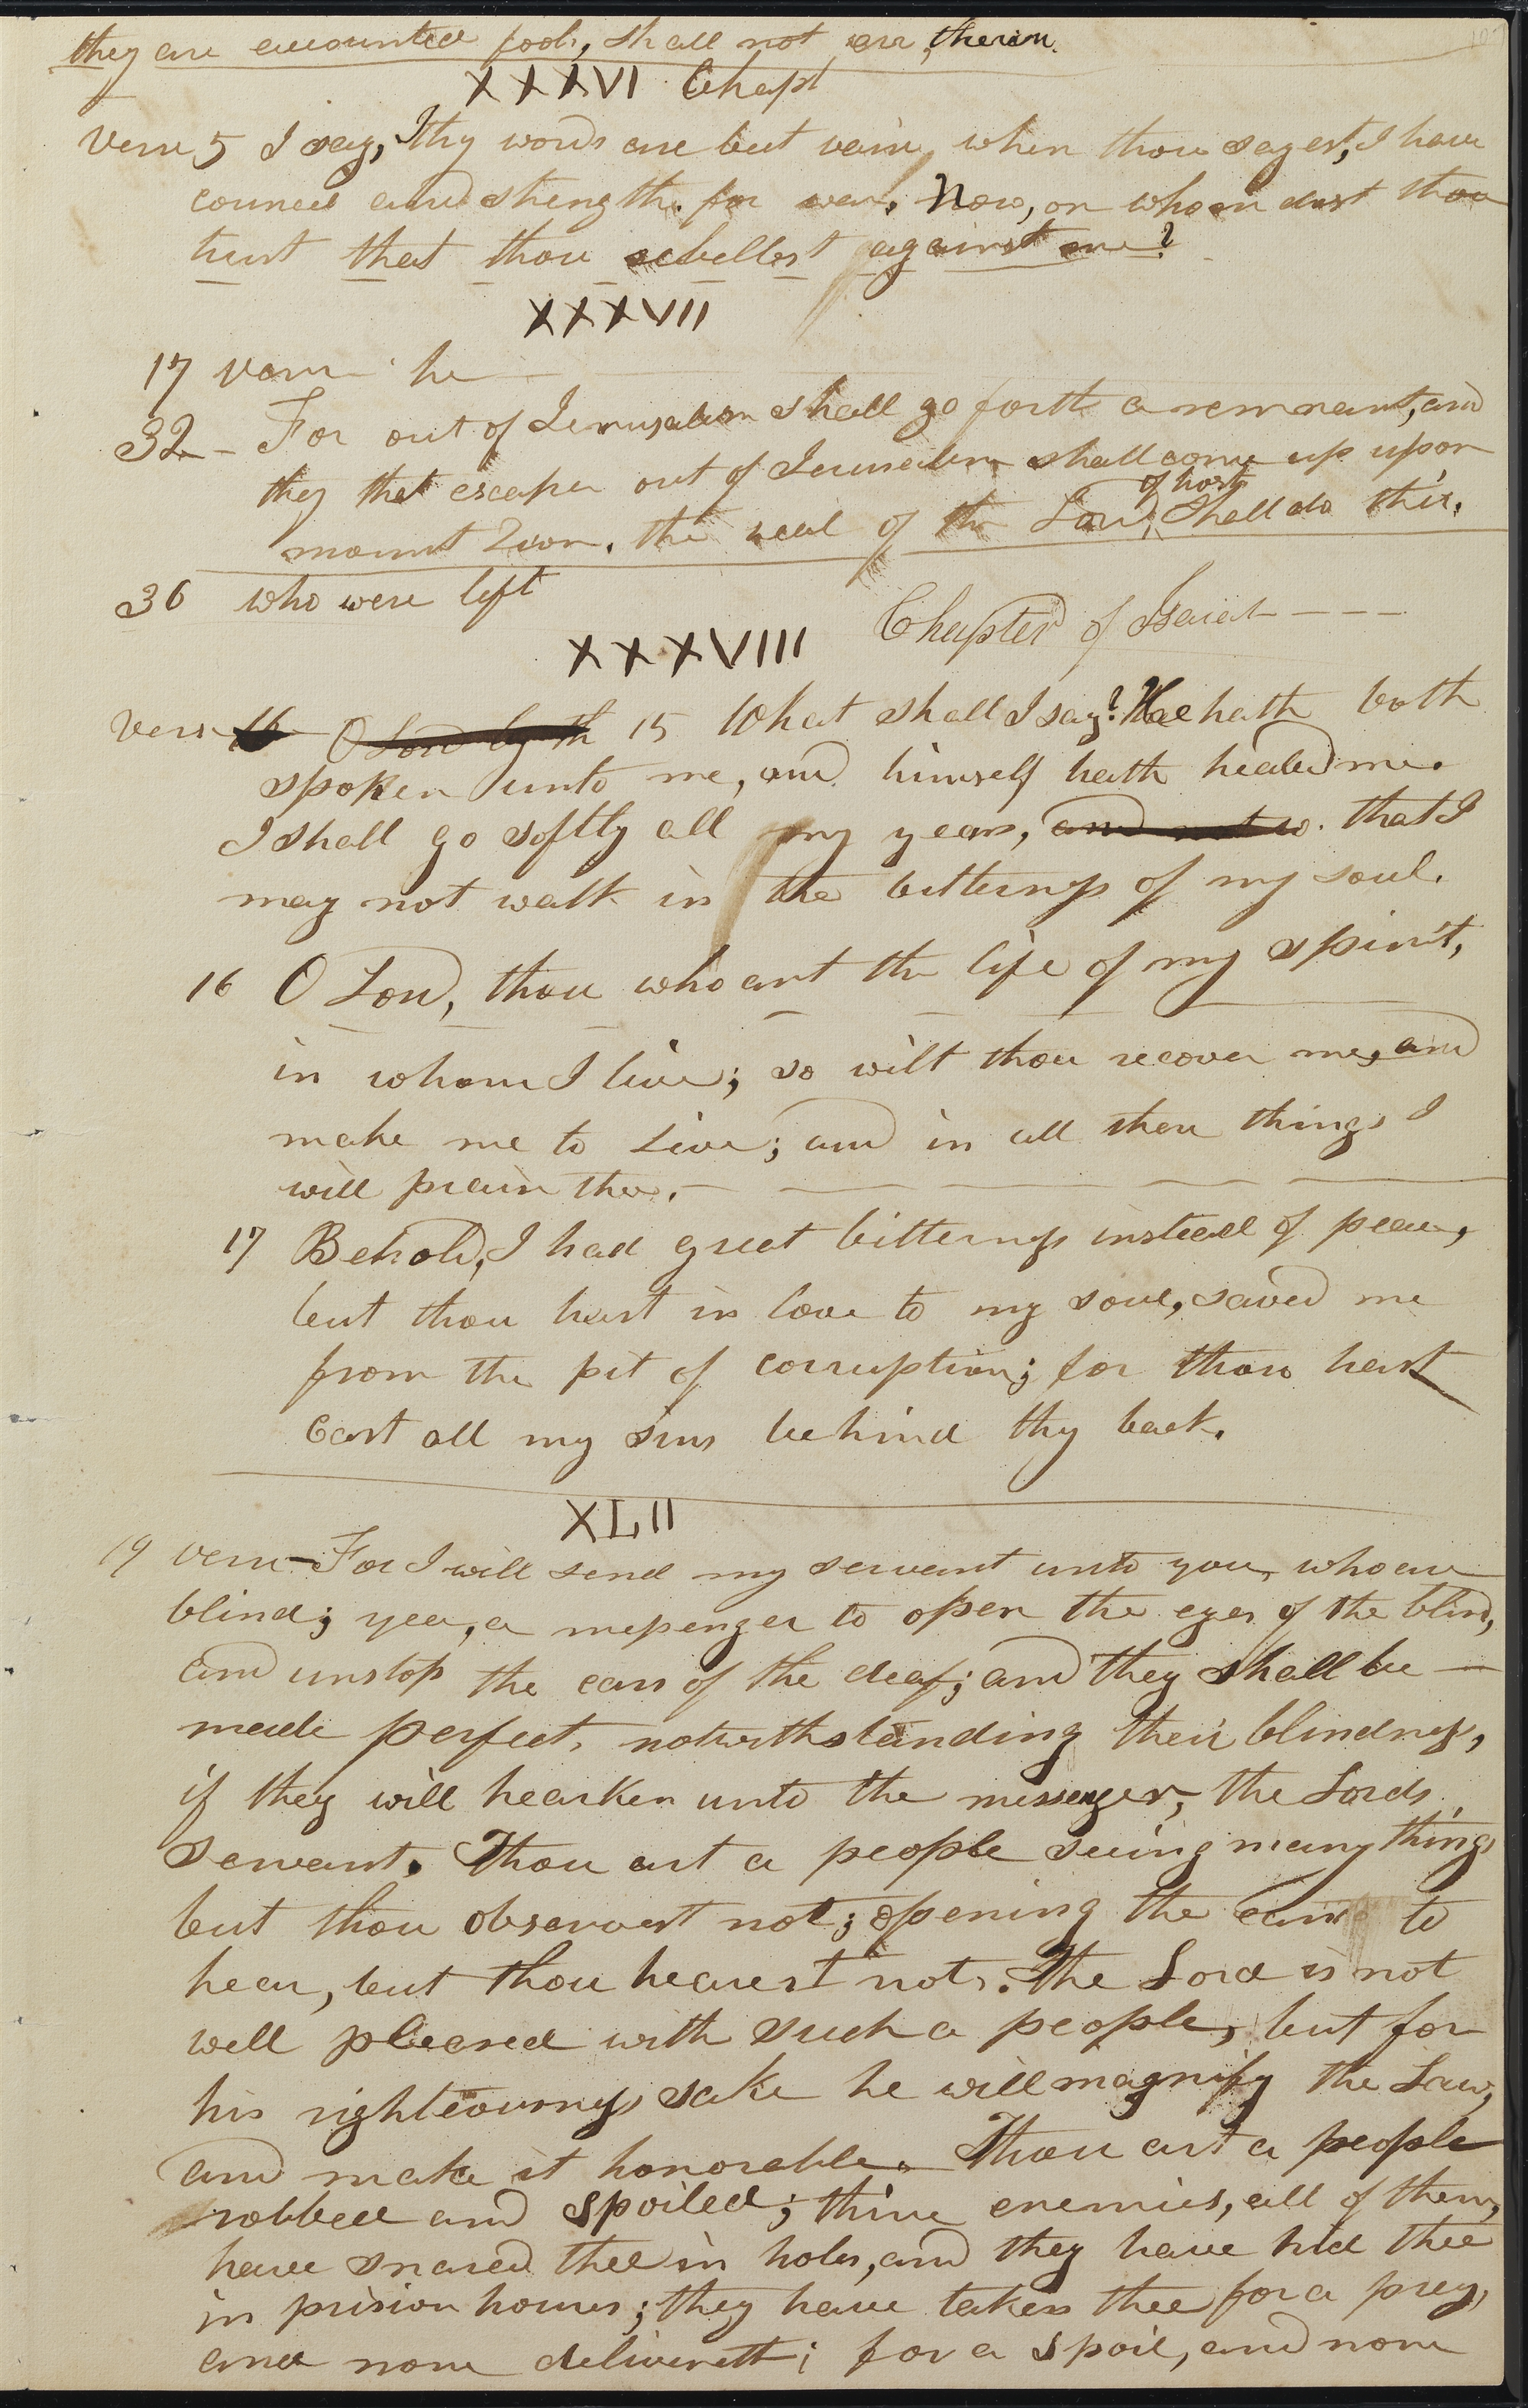 they are accounted fools, shall not err, therein.
XXXVI Chapt
Verse 5 I say, thy words are but vain, when thou sayest, I have
council and strength for war. Now, on whom dost thou
trust that thou rebellest against me?
XXXVII
17 verse he
32 - For out of Jerusalem shall go forth a remnant, and
they that escape out of Jerusalem shall come up upon
of hosts
mount Zion. the zeal of the Lord, shall do this.
36 who were left
XXXVIII Chapter of Isaiah ---
Verse 16 O Lord by th 15 What shall I say? He hath both
spoken unto me, and himself hath healed me.
I shall go softly all my years, and not w that I
may not walk in the bitterness of my soul.
16 O Lord, thou who art the life of my spirit,
in whom I live; so wilt thou recover me, and
make me to live; and in all these things I
will praise thee.
17 Behold, I had great bitterness instead of peace,
but thou hast in love to my soul, saved me
from the pit of corruption; for thou hast
Cast all my sins behind thy back.
XLII
19 verse - For I will send my servant unto you, who are
blind; yea, a messenger to open the eyes of the blind,
and unstop the ears of the deaf; and they shall be -
made perfect, notwithstanding their blindness,
if they will hearken unto the messenger, the Lords
servant. Thou art a people seeing many things
but thou observest not; opening the ears to
hear, but thou hearest not. The Lord is not
well pleased with such a people, but for
his righteousness sake he will magnify the Law,
and make it honorable. Thou art a people
robbed and spoiled; thine enemies, all of them,
have snared thee in holes, and they have hid thee
in prision houses; they have taken thee for a prey,
and none delivereth; for a spoil, and none